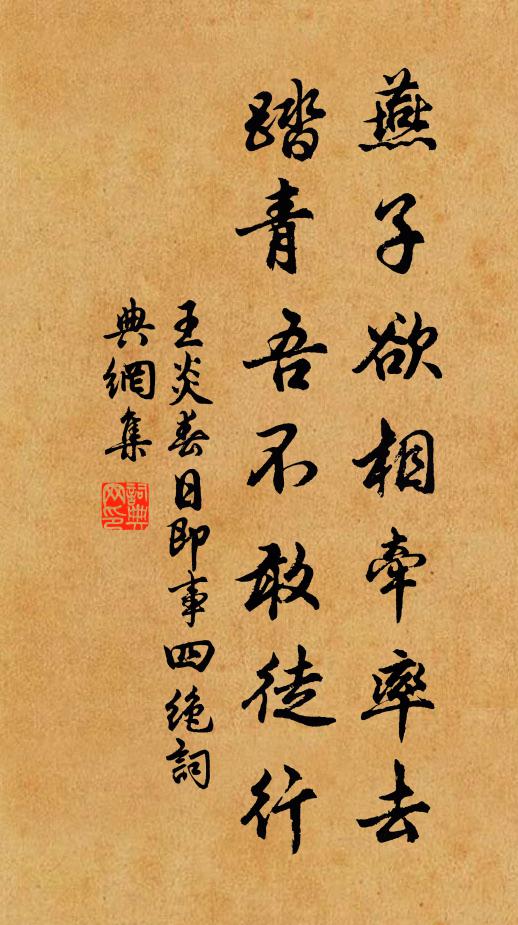 燕子欲相牽率去
踏青吾不敢徒行
王炎春日即事四絶詞
典網集
詞典
网印